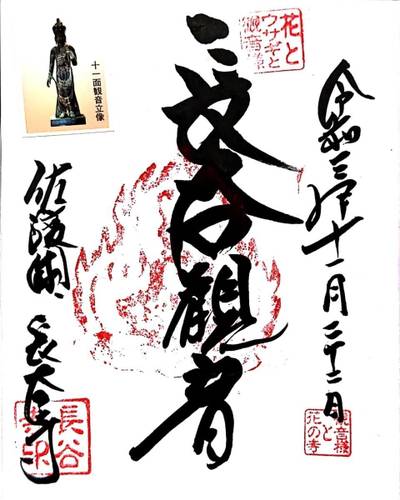 花と
ウサギと
観音様
令和三年十一月二十二日
長谷観音
十一面観音立像
佐渡国 長谷寺
観音様
と
花の寺
長谷
寺印